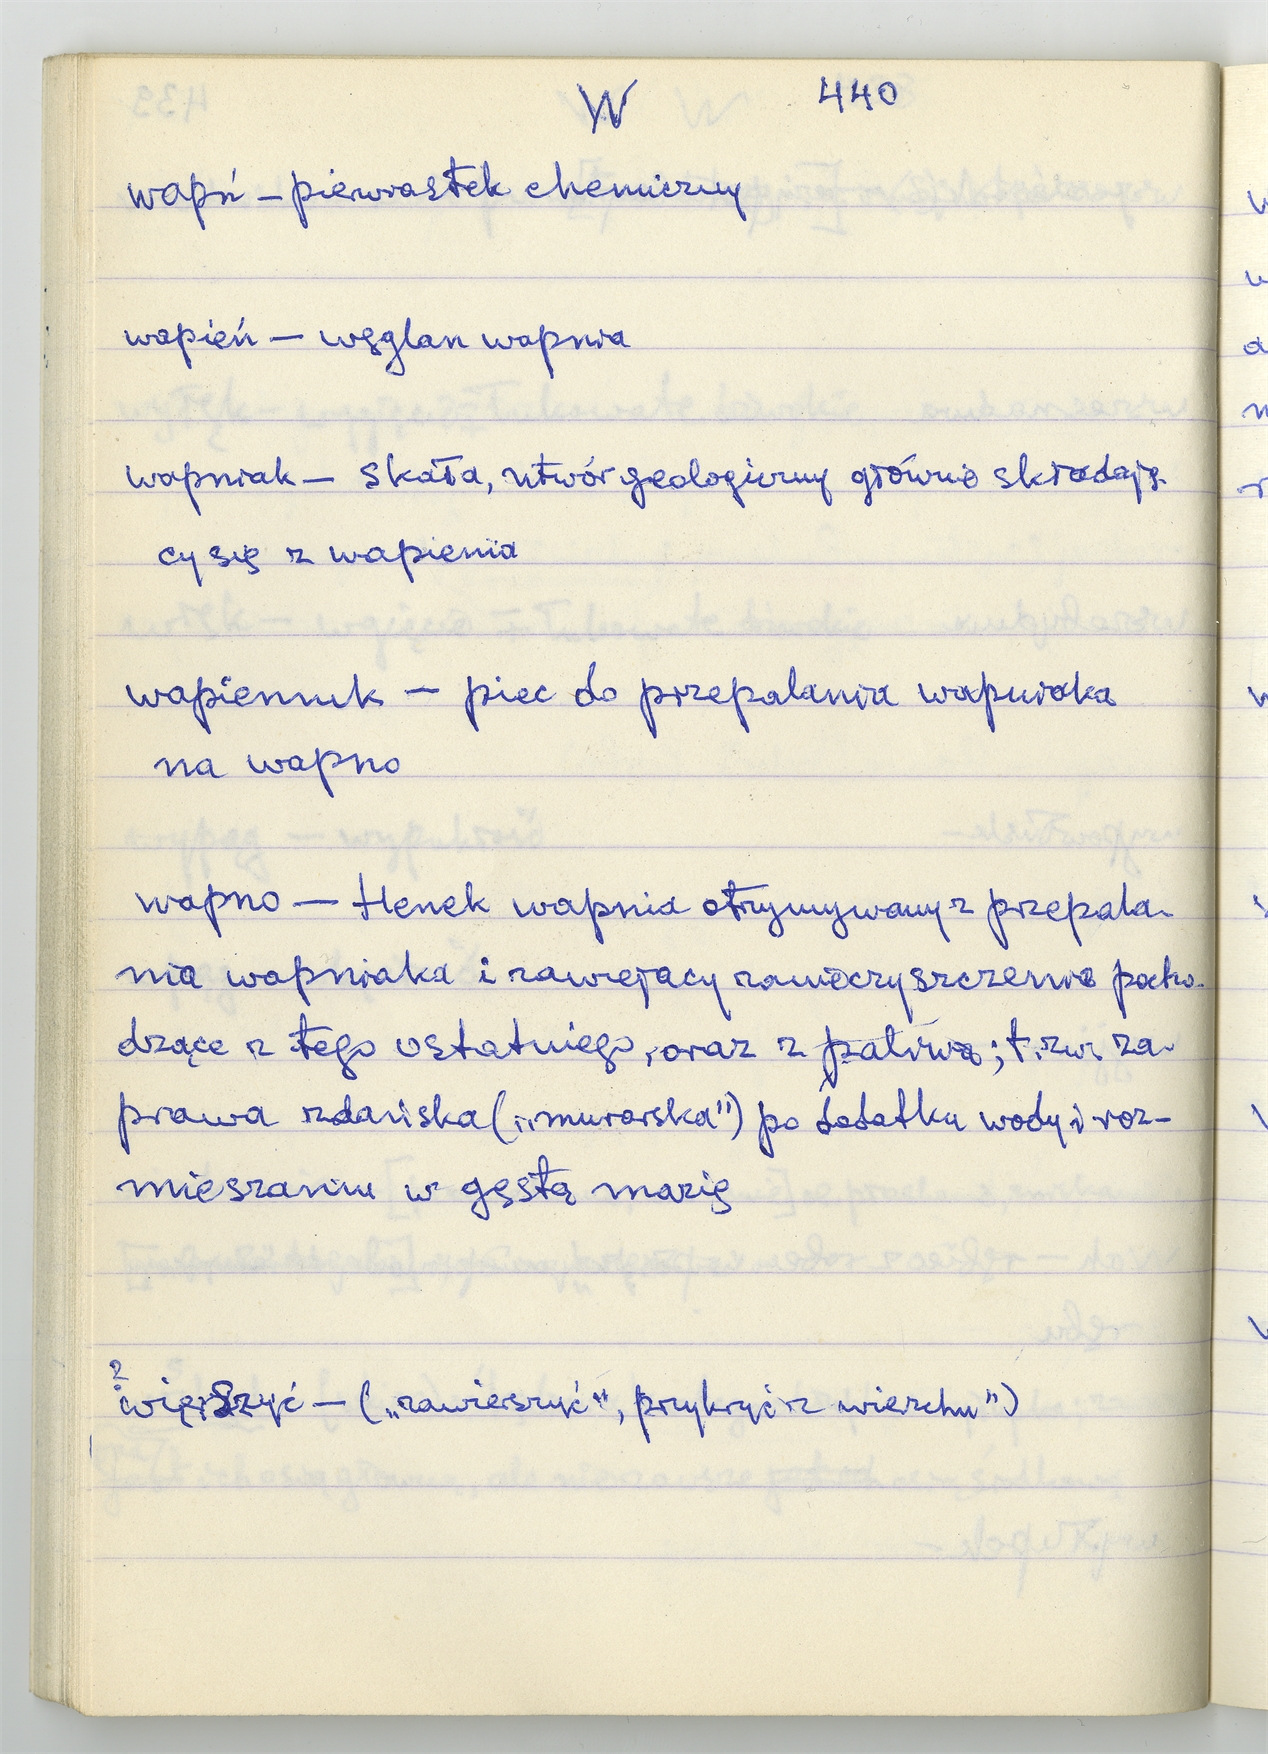 W 440
wapń – pierwiastek chemiczny
wapień – węglan wapnia
wapniak – skała, utwór geologiczny głównie składają-
cy się z wapienia
wapiennik – piec do przepalania wapniaka
na wapno
wapno – tlenek wapnia otrzymywany z przepala-
nia wapniaka i zawierający zanieczyszczenia pocho-
dzące z tego ostatniego, oraz z paliwa; t.zw. za-
prawa zdańska („murarska”) po dodatku wody i roz-
mieszaniu w gęstą mazię
?
więrszyć – („zawierszyć”, przykryć z wierzchu”)